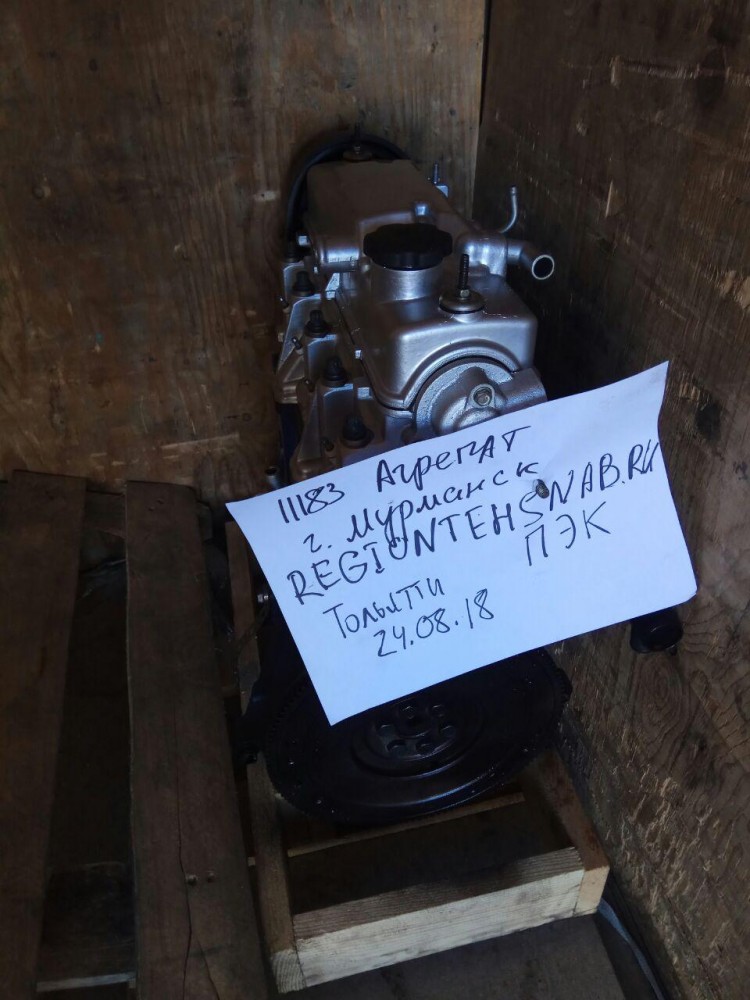 11183 Агрегат
г. Мурманск
REGIONTEHSNAB.RU
ПЭК
Тольятти
24.08.18